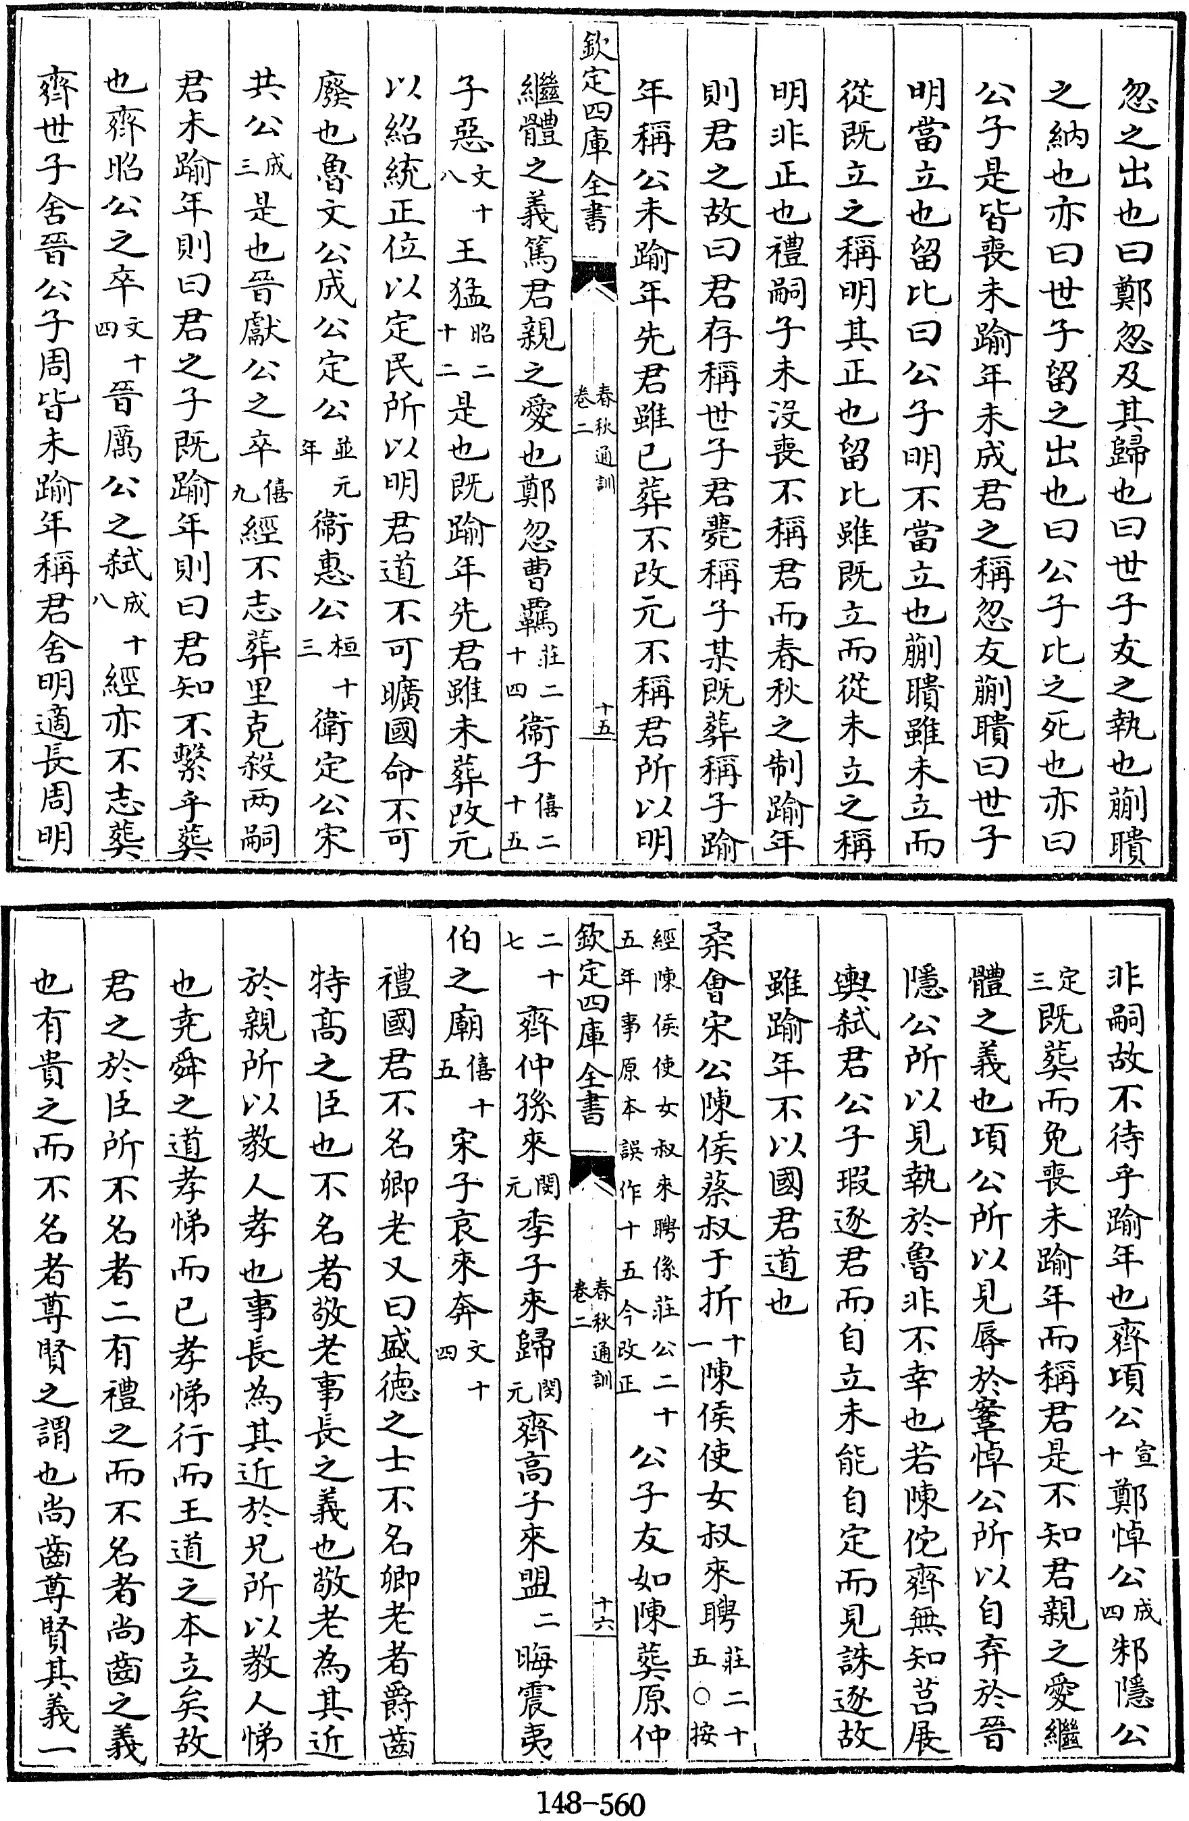 忽之出也曰鄭忽及其歸也曰世子友之執也蒯聵
之納也亦曰世子留之出也曰公子比之死也亦曰
公子是皆喪未踰年未成君之稱忽友蒯聵曰世子
明當立也留比曰公子明不當立也蒯聵雖未立而
從既立之稱明其正也留比雖既立而從未立之稱
明非正也禮嗣子未沒喪不稱君而春秋之制踰年
則君之故曰君存稱世子君薨稱子某既葬稱子踰
年稱公未踰年先君雖已葬不改元不稱君所以明
欽定四庫全書 春秋通訓 卷二 十五
繼體之義篤君親之愛也鄭忽曹羈莊二十四衞子僖二十五
子惡文十八王猛昭二十二是也既踰年先君雖未葬改元
以紹統正位以定民所以明君道不可曠國命不可
廢也魯文公成公定公並元年衞惠公桓十三衛定公宋
共公成三是也晉獻公之卒僖九經不志葬里克殺两嗣
君未踰年則曰君之子既踰年則曰君知不繫乎葬
也齊昭公之卒文十四晉厲公之弑成十八經亦不志葬
齊世子舍晉公子周皆未踰年稱君舍明適長周明
非嗣故不待乎踰年也齊頃公宣十鄭悼公成四邾隱公
定三既葬而免喪未踰年而稱君是不知君親之愛繼
體之義也頃公所以見辱於鞌悼公所以自弃於晉
隱公所以見執於魯非不幸也若陳佗齊無知莒展
輿弑君公子瑕逐君而自立未能自定而見誅逐故
雖踰年不以國君道也
柔會宋公陳侯蔡叔于折十一陳侯使女叔來聘莊二十五○按
經陳侯使女叔来聘係莊公二十五年事原本誤作十五今改正公子友如陳葬原仲
欽定四庫全書 春秋通訓 卷二 十六
二十七齊仲孫來閔元季子來歸閔元齊高子來盟二晦震夷
伯之廟僖十五宋子哀來奔文十四
禮國君不名卿老又曰盛德之士不名卿老者爵齒
特高之臣也不名者敬老事長之義也敬老為其近
於親所以教人孝也事長為其近於兄所以教人悌
也堯舜之道孝悌而已孝悌行而王道之本立矣故
君之於臣所不名者二有禮之而不名者尚齒之義
也有貴之而不名者尊賢之謂也尚齒尊賢其義一
148-560